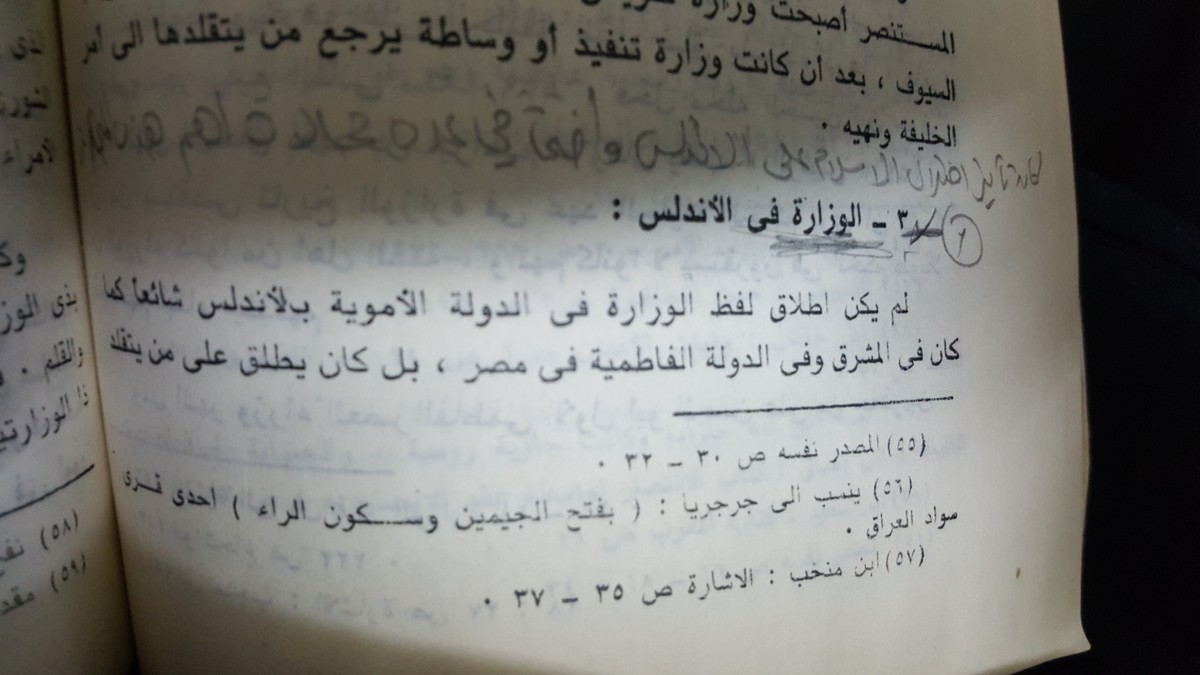 المستنصر أصبحت وزارة
السيوف ، بعد أن كانت وزارة تنفيذ أو وساطة يرجع من يتقلدها الى أمر
الخليفة ونهيه .
٣ ـ الوزارة فى الأندلس :
٢
لم يكن اطلاق لفظ الوزارة فى الدولة الأموية بالأندلس شائعا كما
كان فى المشرق وفى الدولة الفاطمية فى مصر ، بل كان يطلق على من يتقلد
(٥٥) المصدر نفسه ص ٣٠ ـ ٣٢ .
(٥٦) ينسب الى جرجريا : ( بفتح الجيمين وسكون الراء ) احدى قرى
سواد العراق .
(٥٧) ابن منخب : الاشارة ص ٣٥ ـ ٣٧ .
لذى
وك
بذى الوز
والقلم .
ذا الوزارتي
(٥٨) نفح
(٥٩) مقد